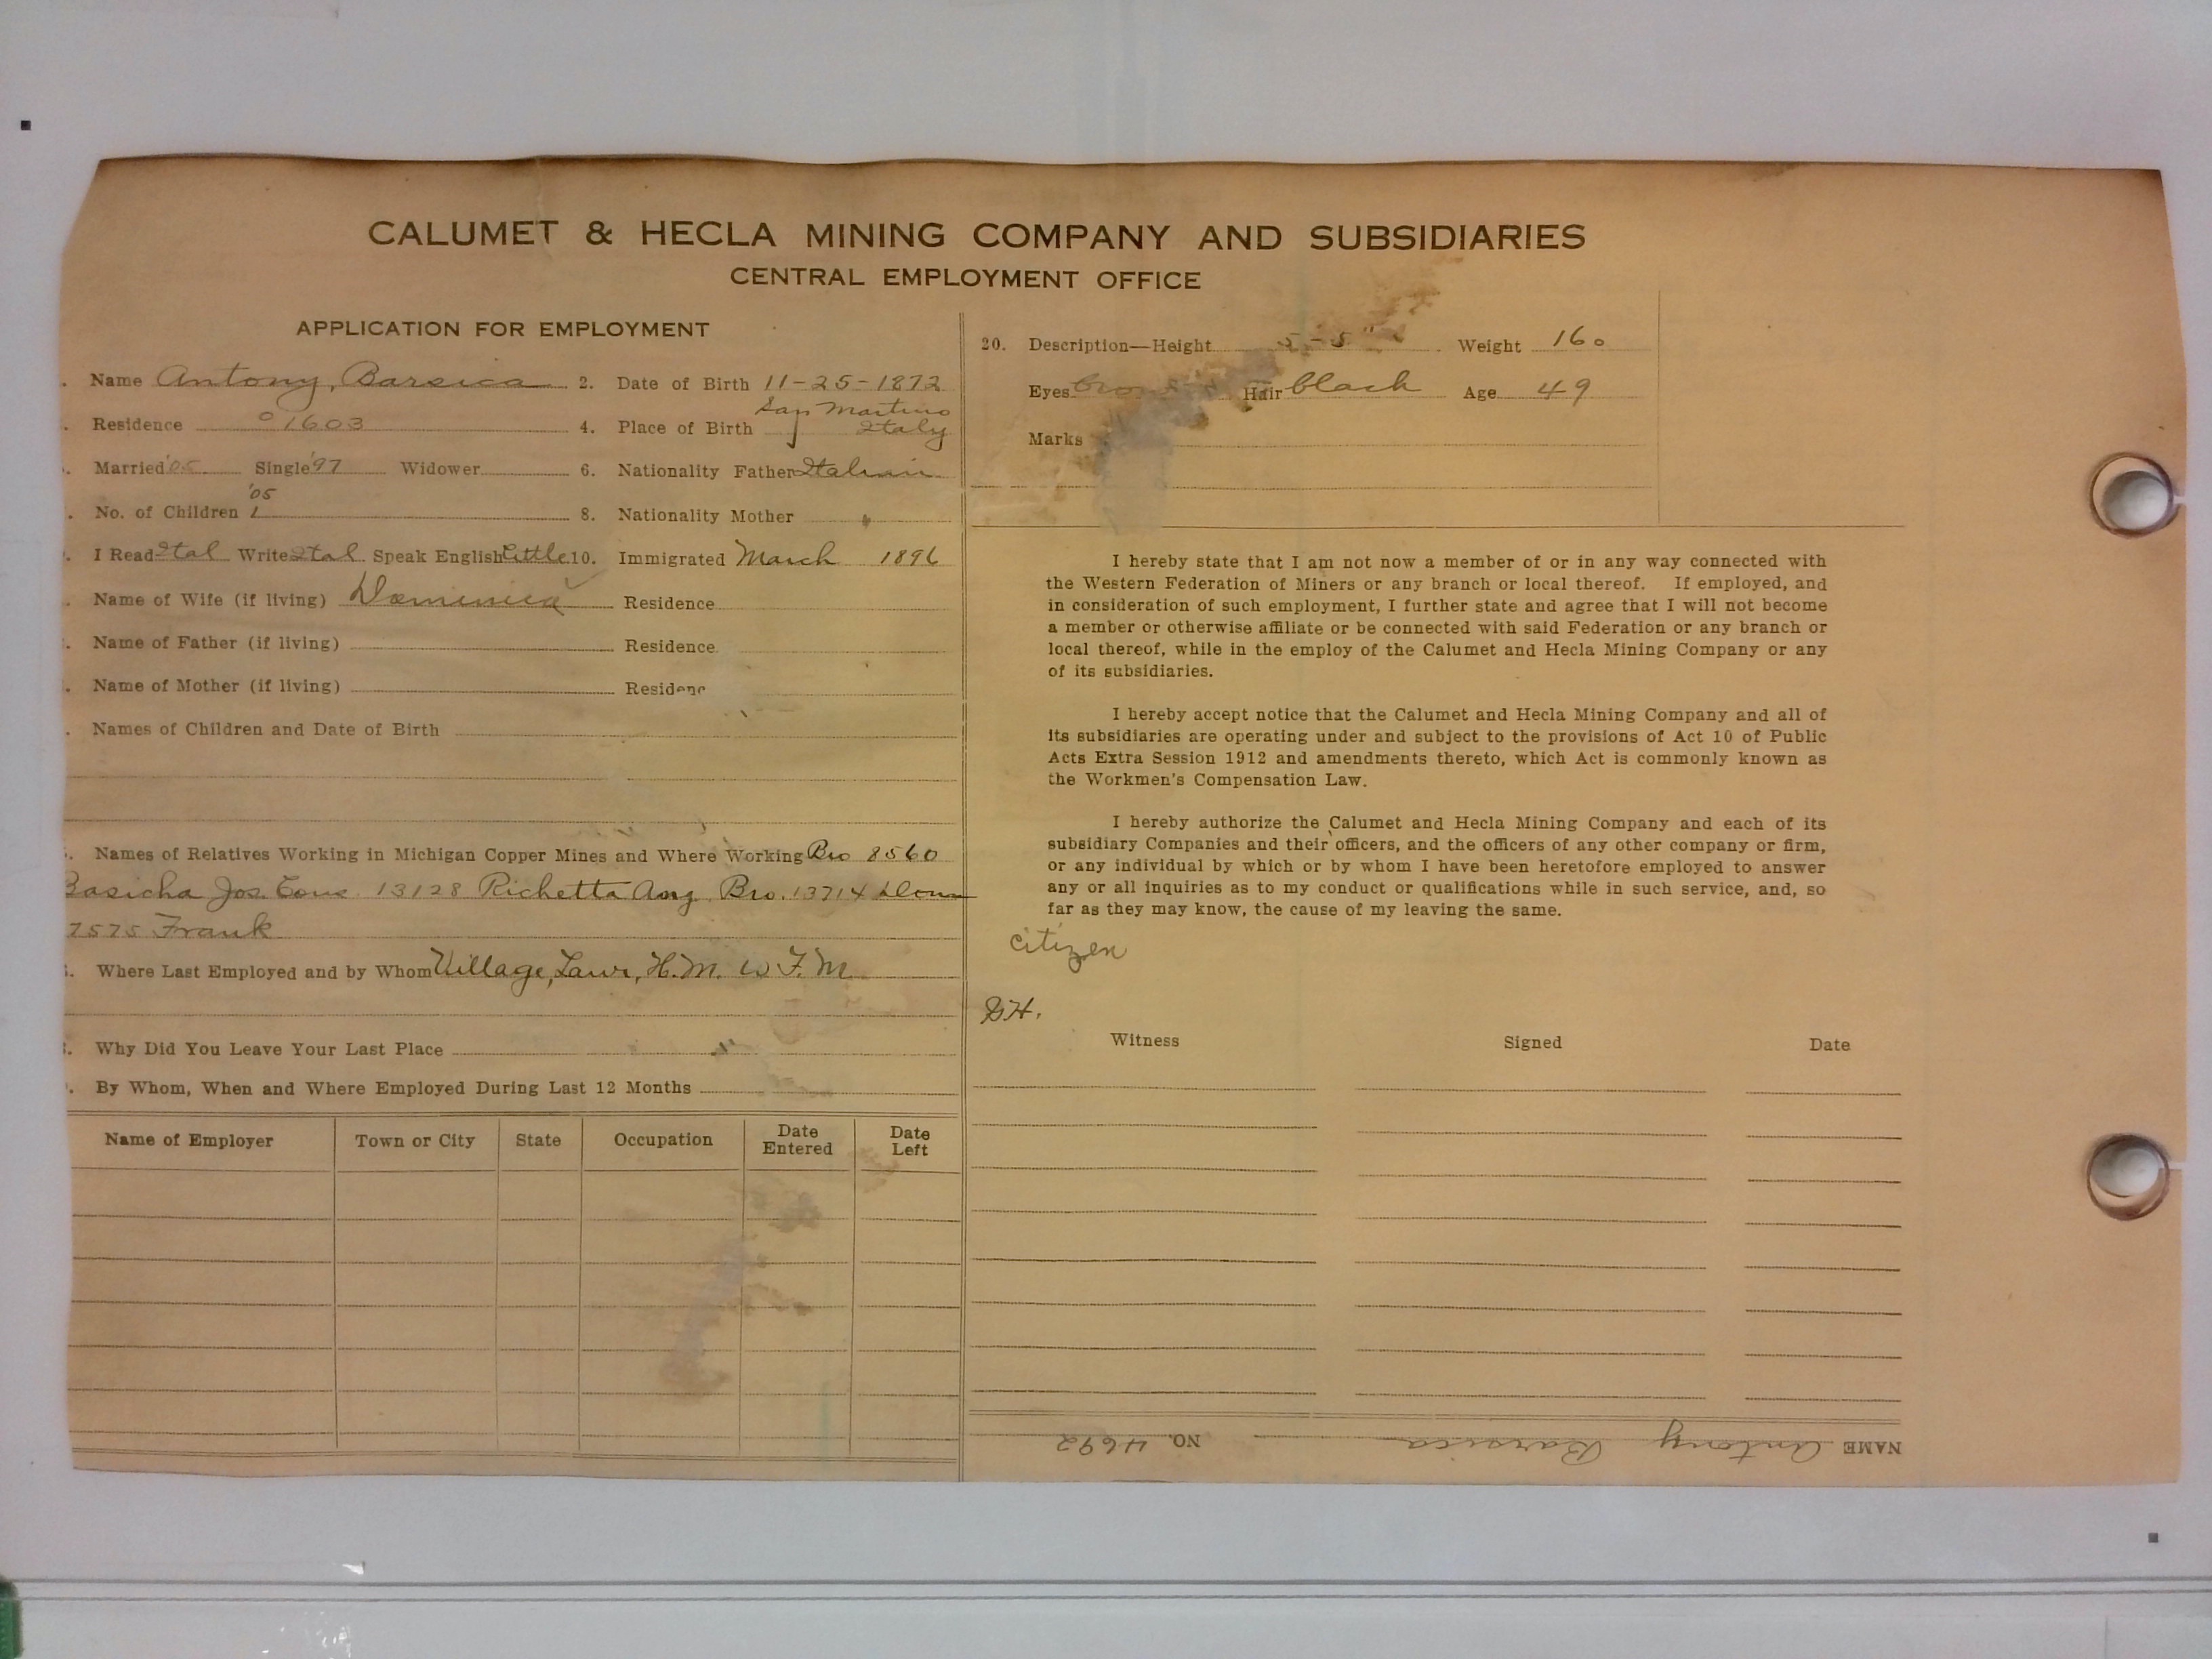 CALUMET & HECLA MINING COMPANY AND SUBSIDIARIES
CENTRAL EMPLOYMENT OFFICE
APPLICATION FOR EMPLOYMENT
. Name Antony, Barsica 2. Date of Birth 11-25-1872
. Residence 1603 4. Place of Birth San Martino Italy
. Married '05 Single '97 Widower 6. Nationality Father Italian
'05
. No. of Children 1 8. Nationality Mother "
. I Read Ital Write Ital Speak English Little 10. Immigrated March 1896
. Name of Wife (if living) Dominica Residence
. Name of Father (if living) Residence
. Name of Mother (if living) Residenc
. Names of Children and Date of Birth
. Names of Relatives Working in Michigan Copper Mines and Where Working Bro 8560
Basicha Jos. Cous. 13128 Richetta Ang. Bro. 13714 Dom
7575 Frank
. Where Last Employed and by Whom Village, Laur, H.M. W.F.M.
. Why Did You Leave Your Last Place "
. By Whom, When and Where Employed During Last 12 Months
Name of Employer Town or City State Occupation Date Entered Date Left
20. Description—Height 5-5" Weight 160
Eyes brown Hair black Age 49
Marks
I hereby state that I am not now a member of or in any way connected with
the Western Federation of Miners or any branch or local thereof. If employed, and
in consideration of such employment, I further state and agree that I will not become
a member or otherwise affiliate or be connected with said Federation or any branch or
local thereof, while in the employ of the Calumet and Hecla Mining Company or any
of its subsidiaries.
I hereby accept notice that the Calumet and Hecla Mining Company and all of
its subsidiaries are operating under and subject to the provisions of Act 10 of Public
Acts Extra Session 1912 and amendments thereto, which Act is commonly known as
the Workmen's Compensation Law.
I hereby authorize the Calumet and Hecla Mining Company and each of its
subsidiary Companies and their officers, and the officers of any other company or firm,
or any individual by which or by whom I have been heretofore employed to answer
any or all inquiries as to my conduct or qualifications while in such service, and, so
far as they may know, the cause of my leaving the same.
citizen
GH.
Witness Signed Date
NAME Antony Barsica NO. 4692